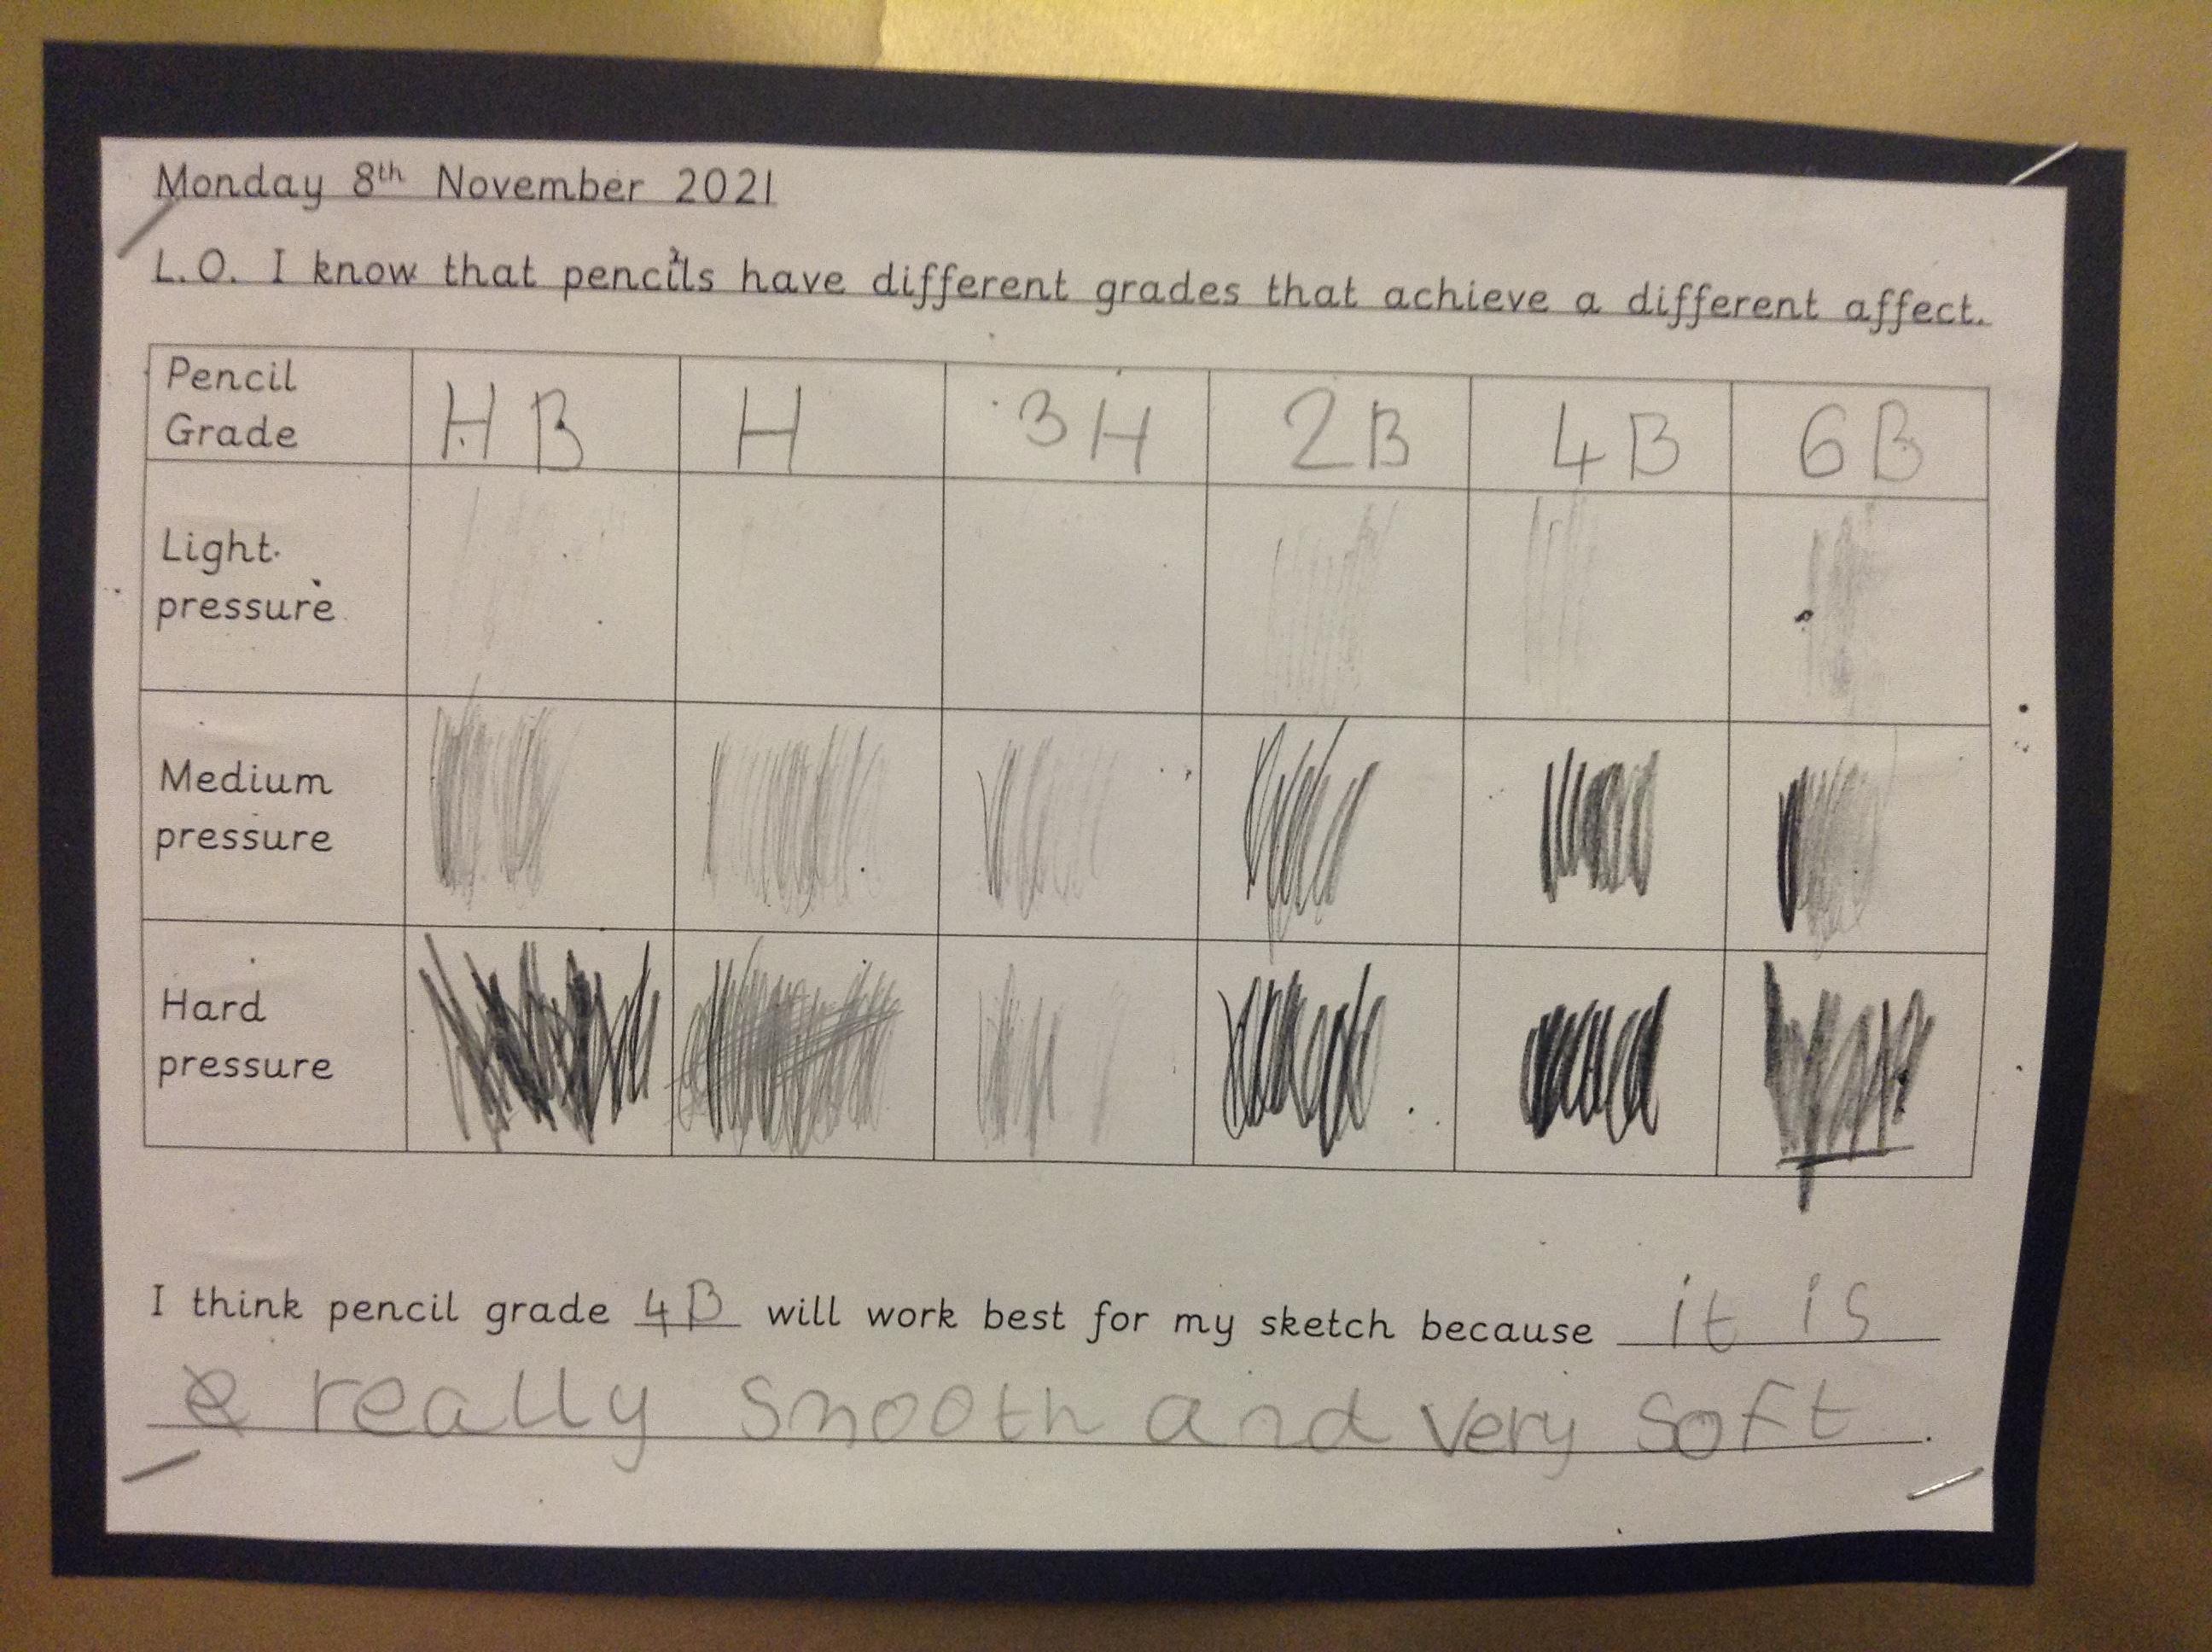 Monday 8th November 2021
L.O. I know that pencils have different grades that achieve a different affect.
Pencil Grade HB H 3H 2B 4B 6B
Light pressure
Medium pressure
Hard pressure
I think pencil grade 4B will work best for my sketch because it is
really smooth and very soft.